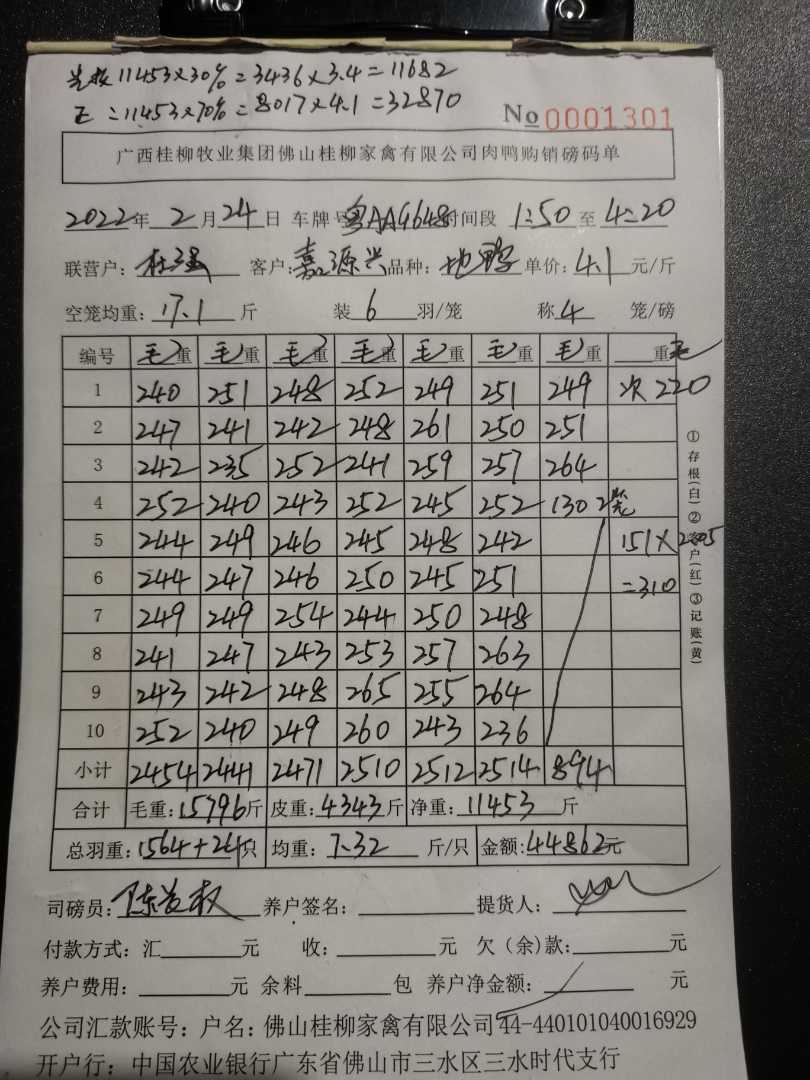 11453×30%=3436×3.4=11682
正=11453×70%=8017×4.1=32870
No 0001301
广西桂柳牧业集团佛山桂柳家禽有限公司肉鸭购销磅码单
2022年 2月24日 车牌号粤AAG648时间段 1:50 至 4:20
联营户:杜强 客户:嘉源兴 品种: 单价:4.1元/斤
空笼均重:17.1斤 装6羽/笼 称4笼/磅
编号 毛重 毛重 毛重 毛重 毛重 毛重 毛重 重毛
1 240 251 248 252 249 251 249 次220
2 247 241 242 248 261 250 251
3 242 235 252 241 259 257 264
4 252 240 243 252 245 252 130 2笼
5 244 249 246 245 248 242 151×
6 244 247 246 250 245 251 =310
7 249 249 254 244 250 248
8 241 247 243 253 257 263
9 243 242 248 265 255 264
10 252 240 249 260 243 236
小计 2454 2441 2471 2510 2512 2514 894
合计 毛重:15796斤 皮重:4343斤 净重:11453斤
总羽重:1564+24只 均重:7.32斤/只 金额:44862元
①存根(白)②客户(红)③记账(黄)
司磅员:陈 权 养户签名: 提货人:
付款方式:汇 元 收: 元 欠(余)款: 元
养户费用: 元 余料 包 养户净金额: 元
公司汇款账号:户名:佛山桂柳家禽有限公司44-440101040016929
开户行:中国农业银行广东省佛山市三水区三水时代支行